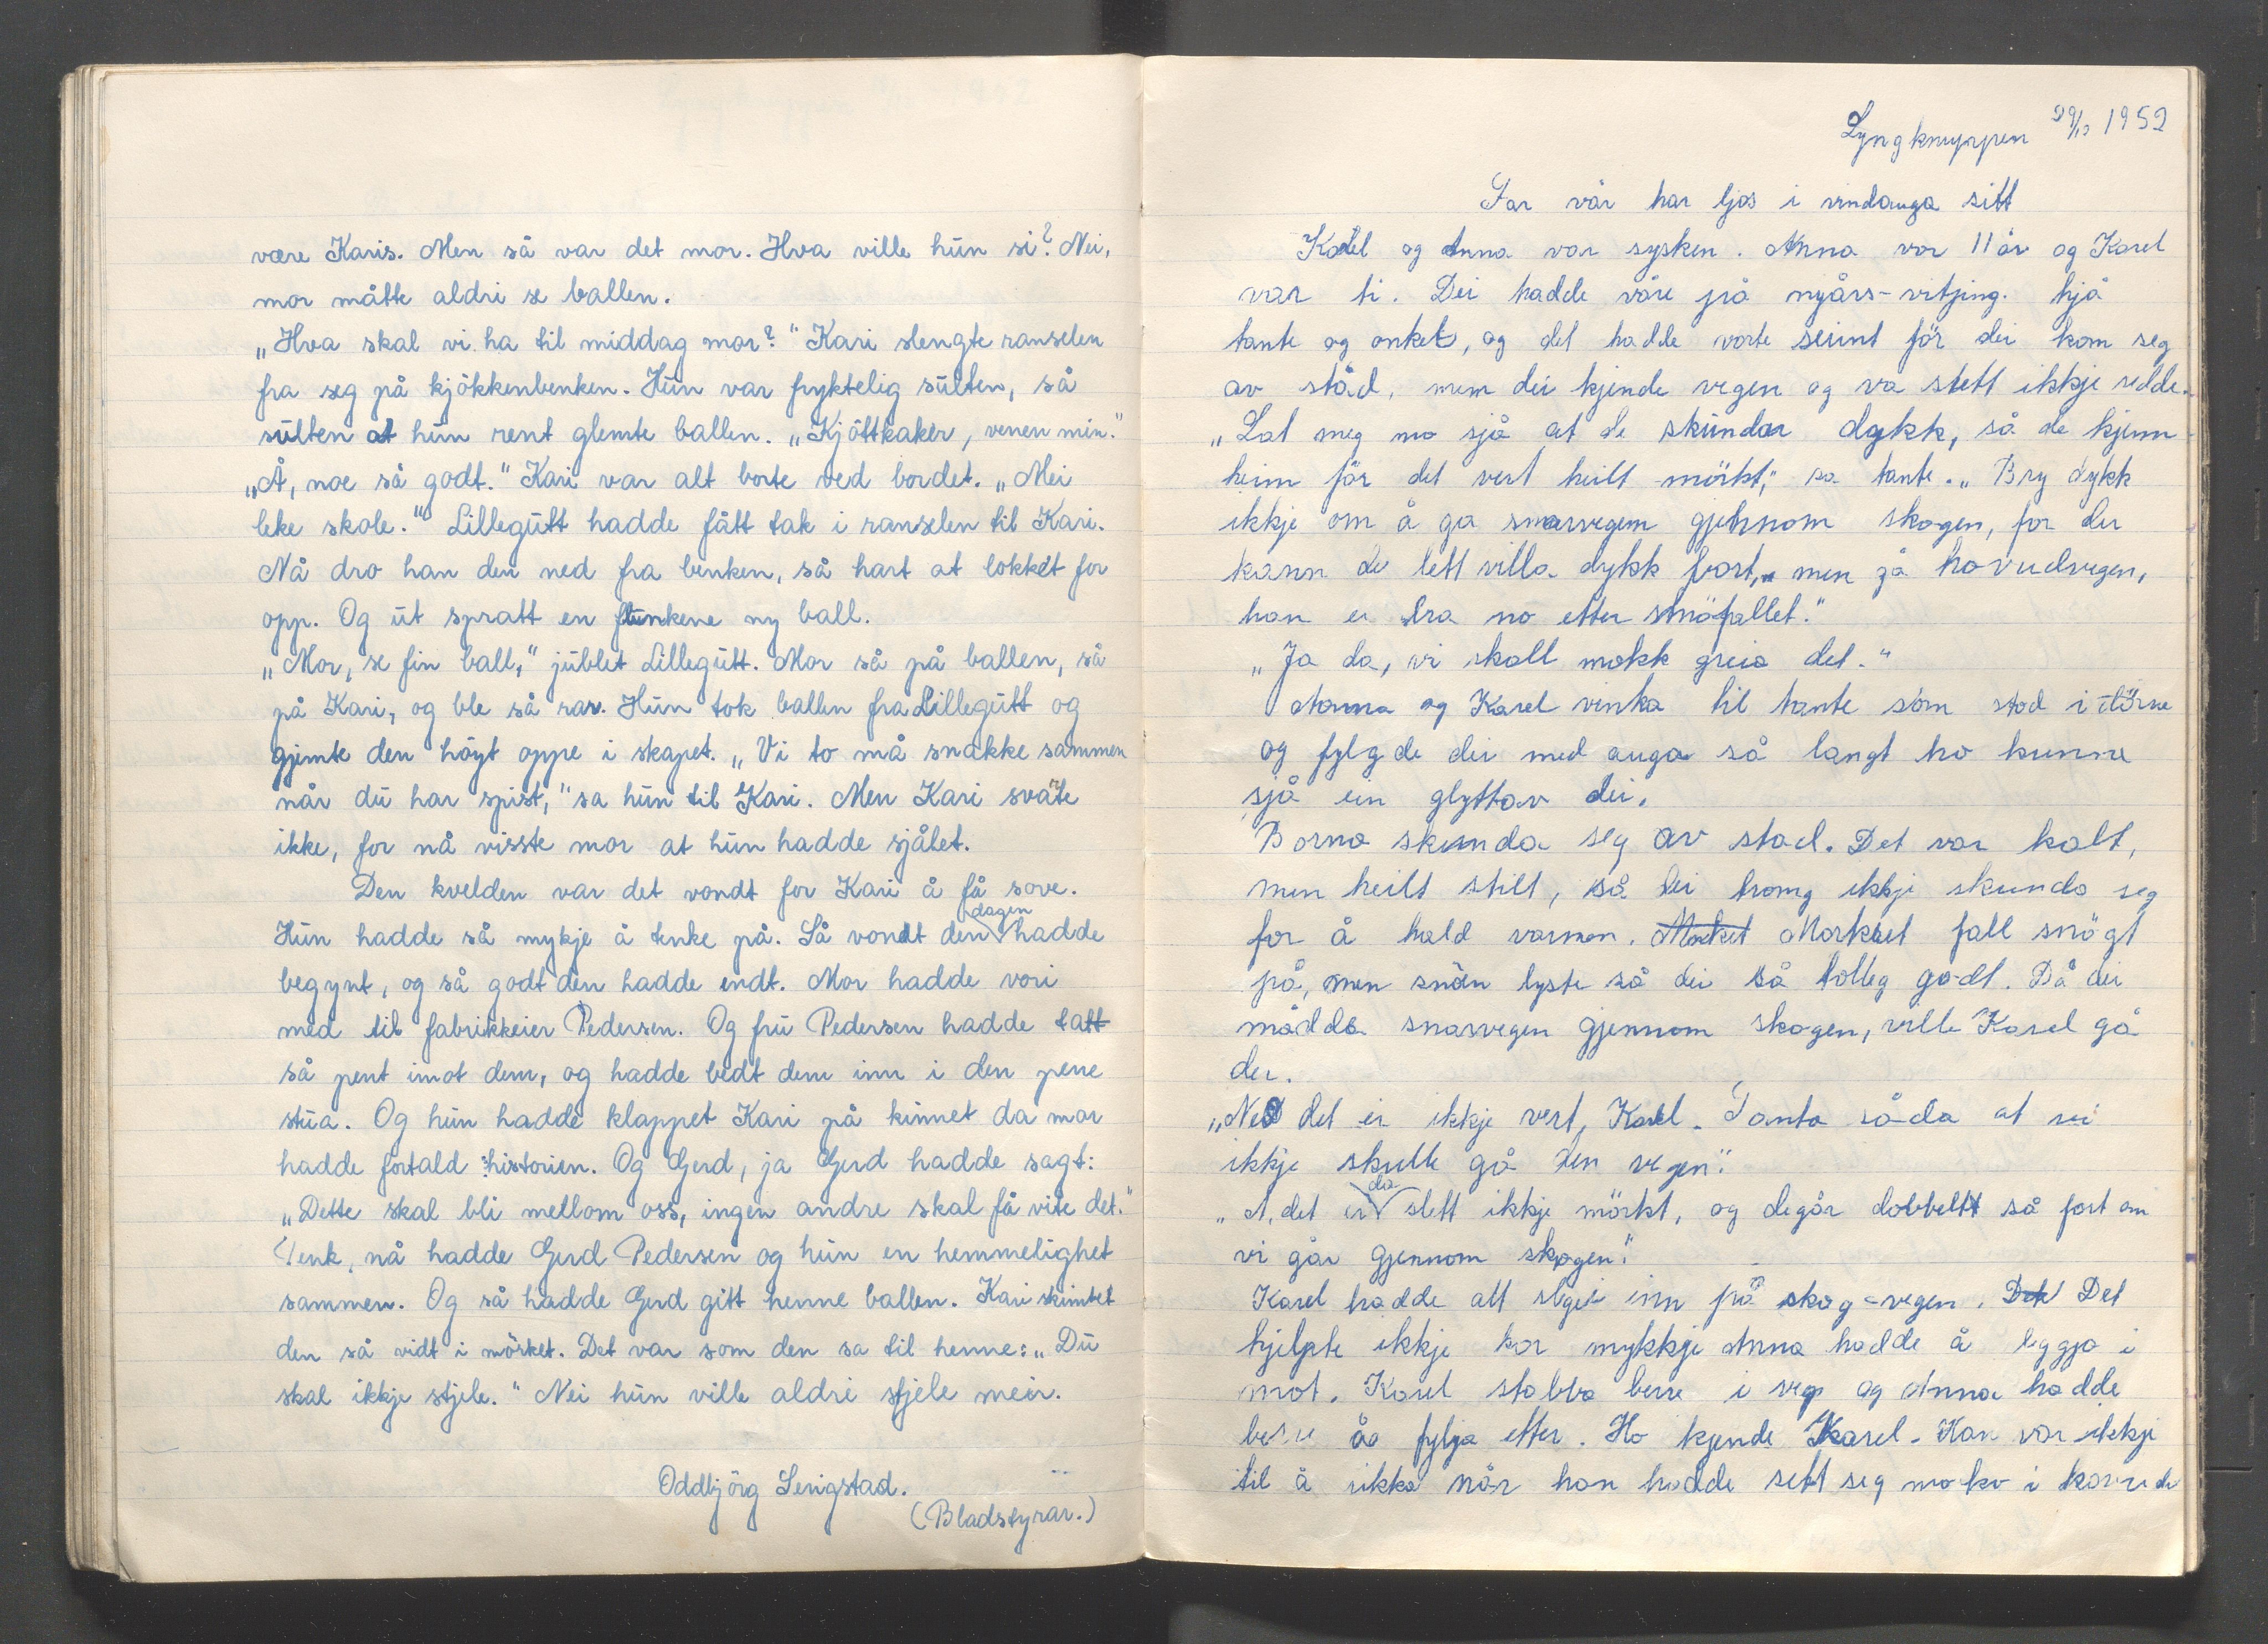 være Karis. Men så var det mor. Hva ville hun si? Nei,
mor måtte aldri se ballen.
„Hva skal vi ha til middag mor?" Kari slengte ranselen
fra seg på kjökkenbenken. Hun var fryktelig sulten, så
sulten at hun rent glemte ballen. „Kjöttkaker, venen min."
„Å, noe så godt." Kari var alt borte ved bordet. „Mei
leke skole." Lillegutt hadde fått tak i ranselen til Kari.
Nå dro han den ned fra benken, så hart at lokket for
opp. Og ut spratt en flunkene ny ball.
„Mor, se fin ball," jublet Lillegutt. Mor så på ballen, så
på Kari, og ble så rar. Hun tok ballen fra Lillegutt og
gjemte den höyt oppe i skapet. „Vi to må snakke sammen
når du har spist," sa hun til Kari. Men Kari svarte
ikke, for nå visste mor at hun hadde sjålet.
Den kvelden var det vondt for Kari å få sove.
Hun hadde så mykje å tenke på. Så vondt den dagen hadde
begynt, og så godt den hadde endt. Mor hadde vori
med til fabrikkeier Pedersen. Og fru Pedersen hadde tatt
så pent imot dem, og hadde bedt dem inn i den pene
stua. Og hun hadde klappet Kari på kinnet da mor
hadde fortald historien. Og Gerd, ja Gerd hadde sagt:
„Dette skal bli mellom oss, ingen andre skal få vite det."
Tenk, nå hadde Gerd Pedersen og hun en hemmelighet
sammen. Og så hadde Gerd gitt henne ballen. Kari skimtet
den så vidt i mörket. Det var som den sa til henne: „Du
skal ikkje stjele." Nei hun ville aldri stjele meir.
Oddbjörg Lengstad.
(Bladstyrar.)
Lyngknuppen 29/12 1952
Far vår har ljos i vindauga sitt
Karel og Anna var sysken. Anna var 11 år og Karel
var ti. Dei hadde våre på nyårs-vitjing. hjå
tante og onkel, og det hadde vorte seint för dei kom seg
av stad, mem dei kjende vegen og va slett ikkje redde.
„Lat meg no sjå at de skundar dykk, så de kjem
heim för det vert heilt mörkt," sa tante. „Bry dykk
ikkje om å ga snarvegem gjennom skogen, for der
kann de lett villa dykk bort, men gå hovudvegen,
han er bra no etter snöfallet."
„Ja da, vi skall nokk greia det."
Anna og Karel vinka til tante som stod i dörne
og fylgde dei med auga så langt ho kunne
sjå ein glyttav dei.
Borna skunda seg av stad. Det var kalt,
men heilt stilt, så dei trong ikkje skunda seg
for å hald varmen. Morket Morkset fall snögt
på, men snöen lyste så dei så tolleg godt. Då dei
nådde snarvegen gjennom skogen, ville Karel gå
der.
„Nei det er ikkje vert, Karel. Tanta såda at vi
ikkje skulle gå den vegen".
„A, det er da slett ikkje mörkt, og degår dobbeltt så fort om
vi går gjennom skogen".
Karel hadde alt slgei inn på skog-vegen. Det Det
hjelpte ikkje kor mykkje Anna hadde å leggja i
mot. Karel stabba berre i veg og Anna hadde
berre åo fylgja etter. Ho kjende Karel. Han var ikkje
til å rikka når han hadde sett seg noko i hovude